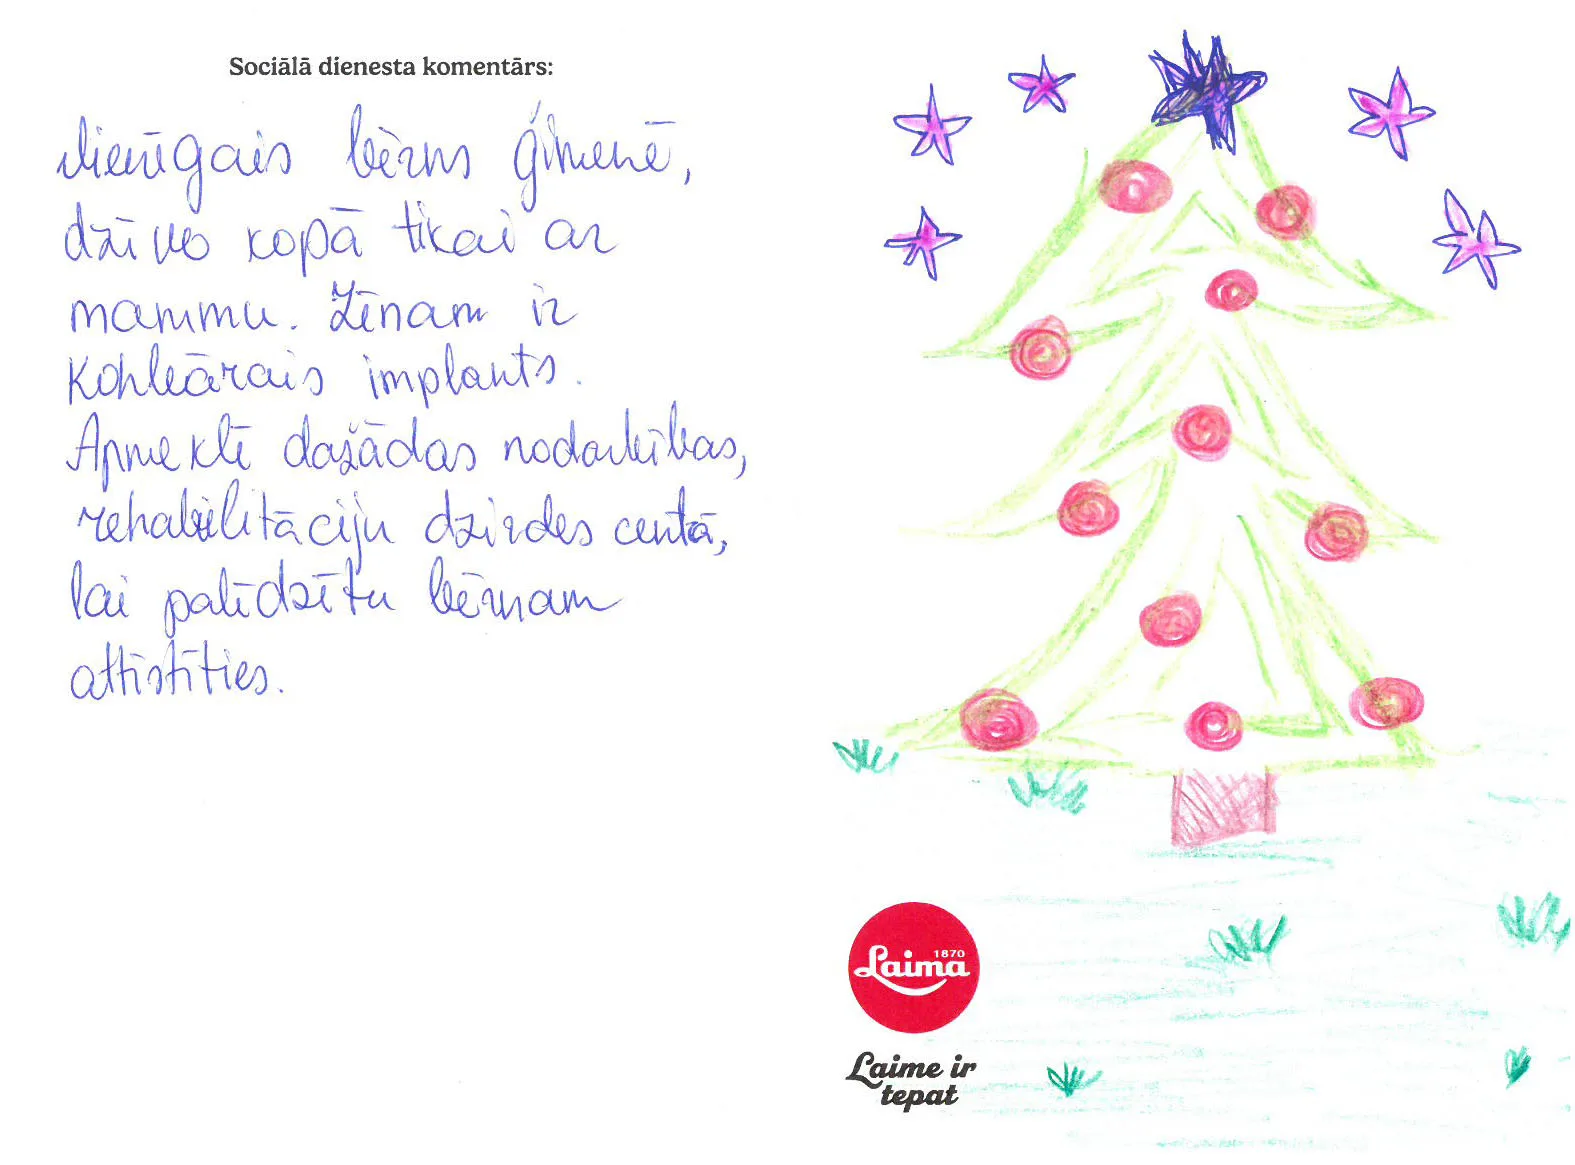 Sociālā dienesta komentārs:
vienīgais bērns ģimenē,
dzīvo kopā tikai ar
mammu. Zēnam ir
kohleārais implants.
Apmeklē dažādas nodarbības,
rehabilitāciju dzirdes centā,
lai palīdzētu bērnam
attīstīties.
Laima 1870
Laime ir
tepat